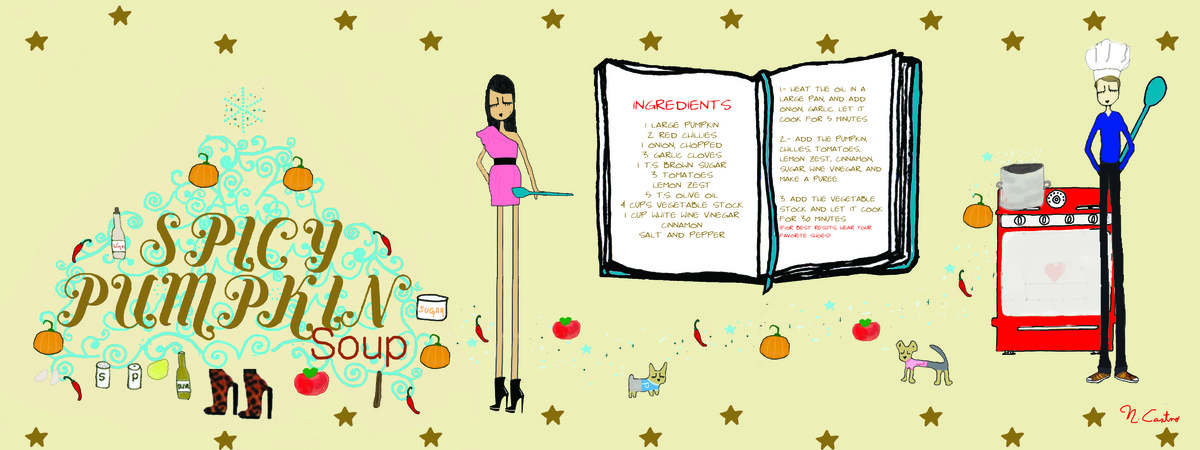 SPICY
PUMPKIN
Soup
SUGAR
S P
INGREDIENTS
1 LARGE PUMPKIN
2 RED CHILIES
1 ONION, CHOPPED
3 GARLIC CLOVES
1 T.S. BROWN SUGAR
3 TOMATOES
LEMON ZEST
5 T.S. OLIVE OIL
4 CUPS VEGETABLE STOCK
1 CUP WHITE WINE VINEGAR
CINNAMON
SALT AND PEPPER
1.- HEAT THE OIL IN A
LARGE PAN, AND ADD
ONION, GARLIC. LET IT
COOK FOR 5 MINUTES
2.- ADD THE PUMPKIN,
CHILIES, TOMATOES,
LEMON ZEST, CINNAMON,
SUGAR, WINE VINEGAR, AND
MAKE A PUREE.
3. ADD THE VEGETABLE
STOCK AND LET IT COOK
FOR 30 MINUTES.
(FOR BEST RESULTS, WEAR YOUR
FAVORITE SHOES)
N Castro